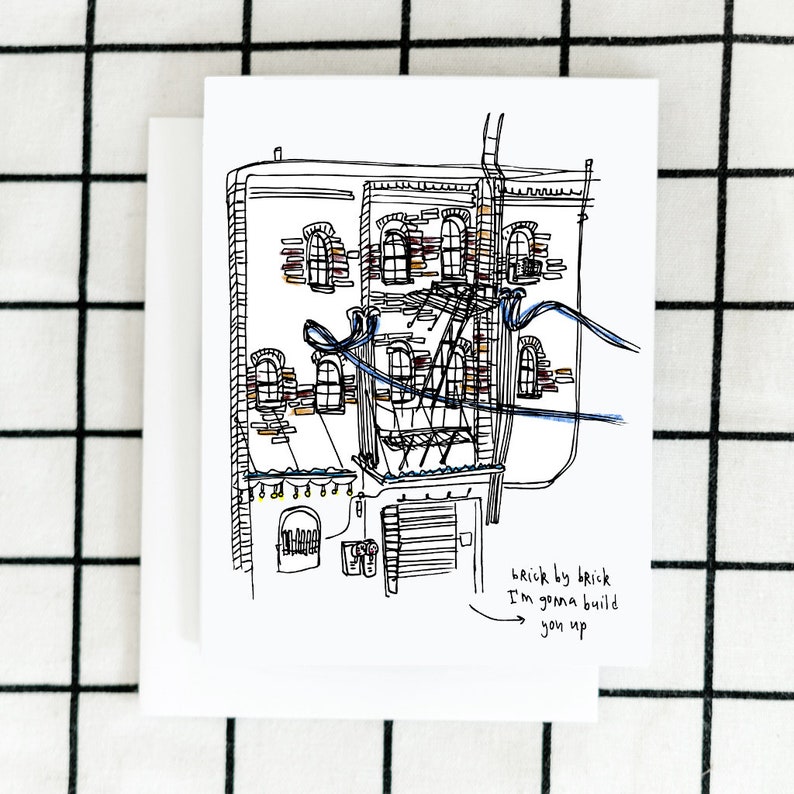 brick by brick
I'm gonna build
you up